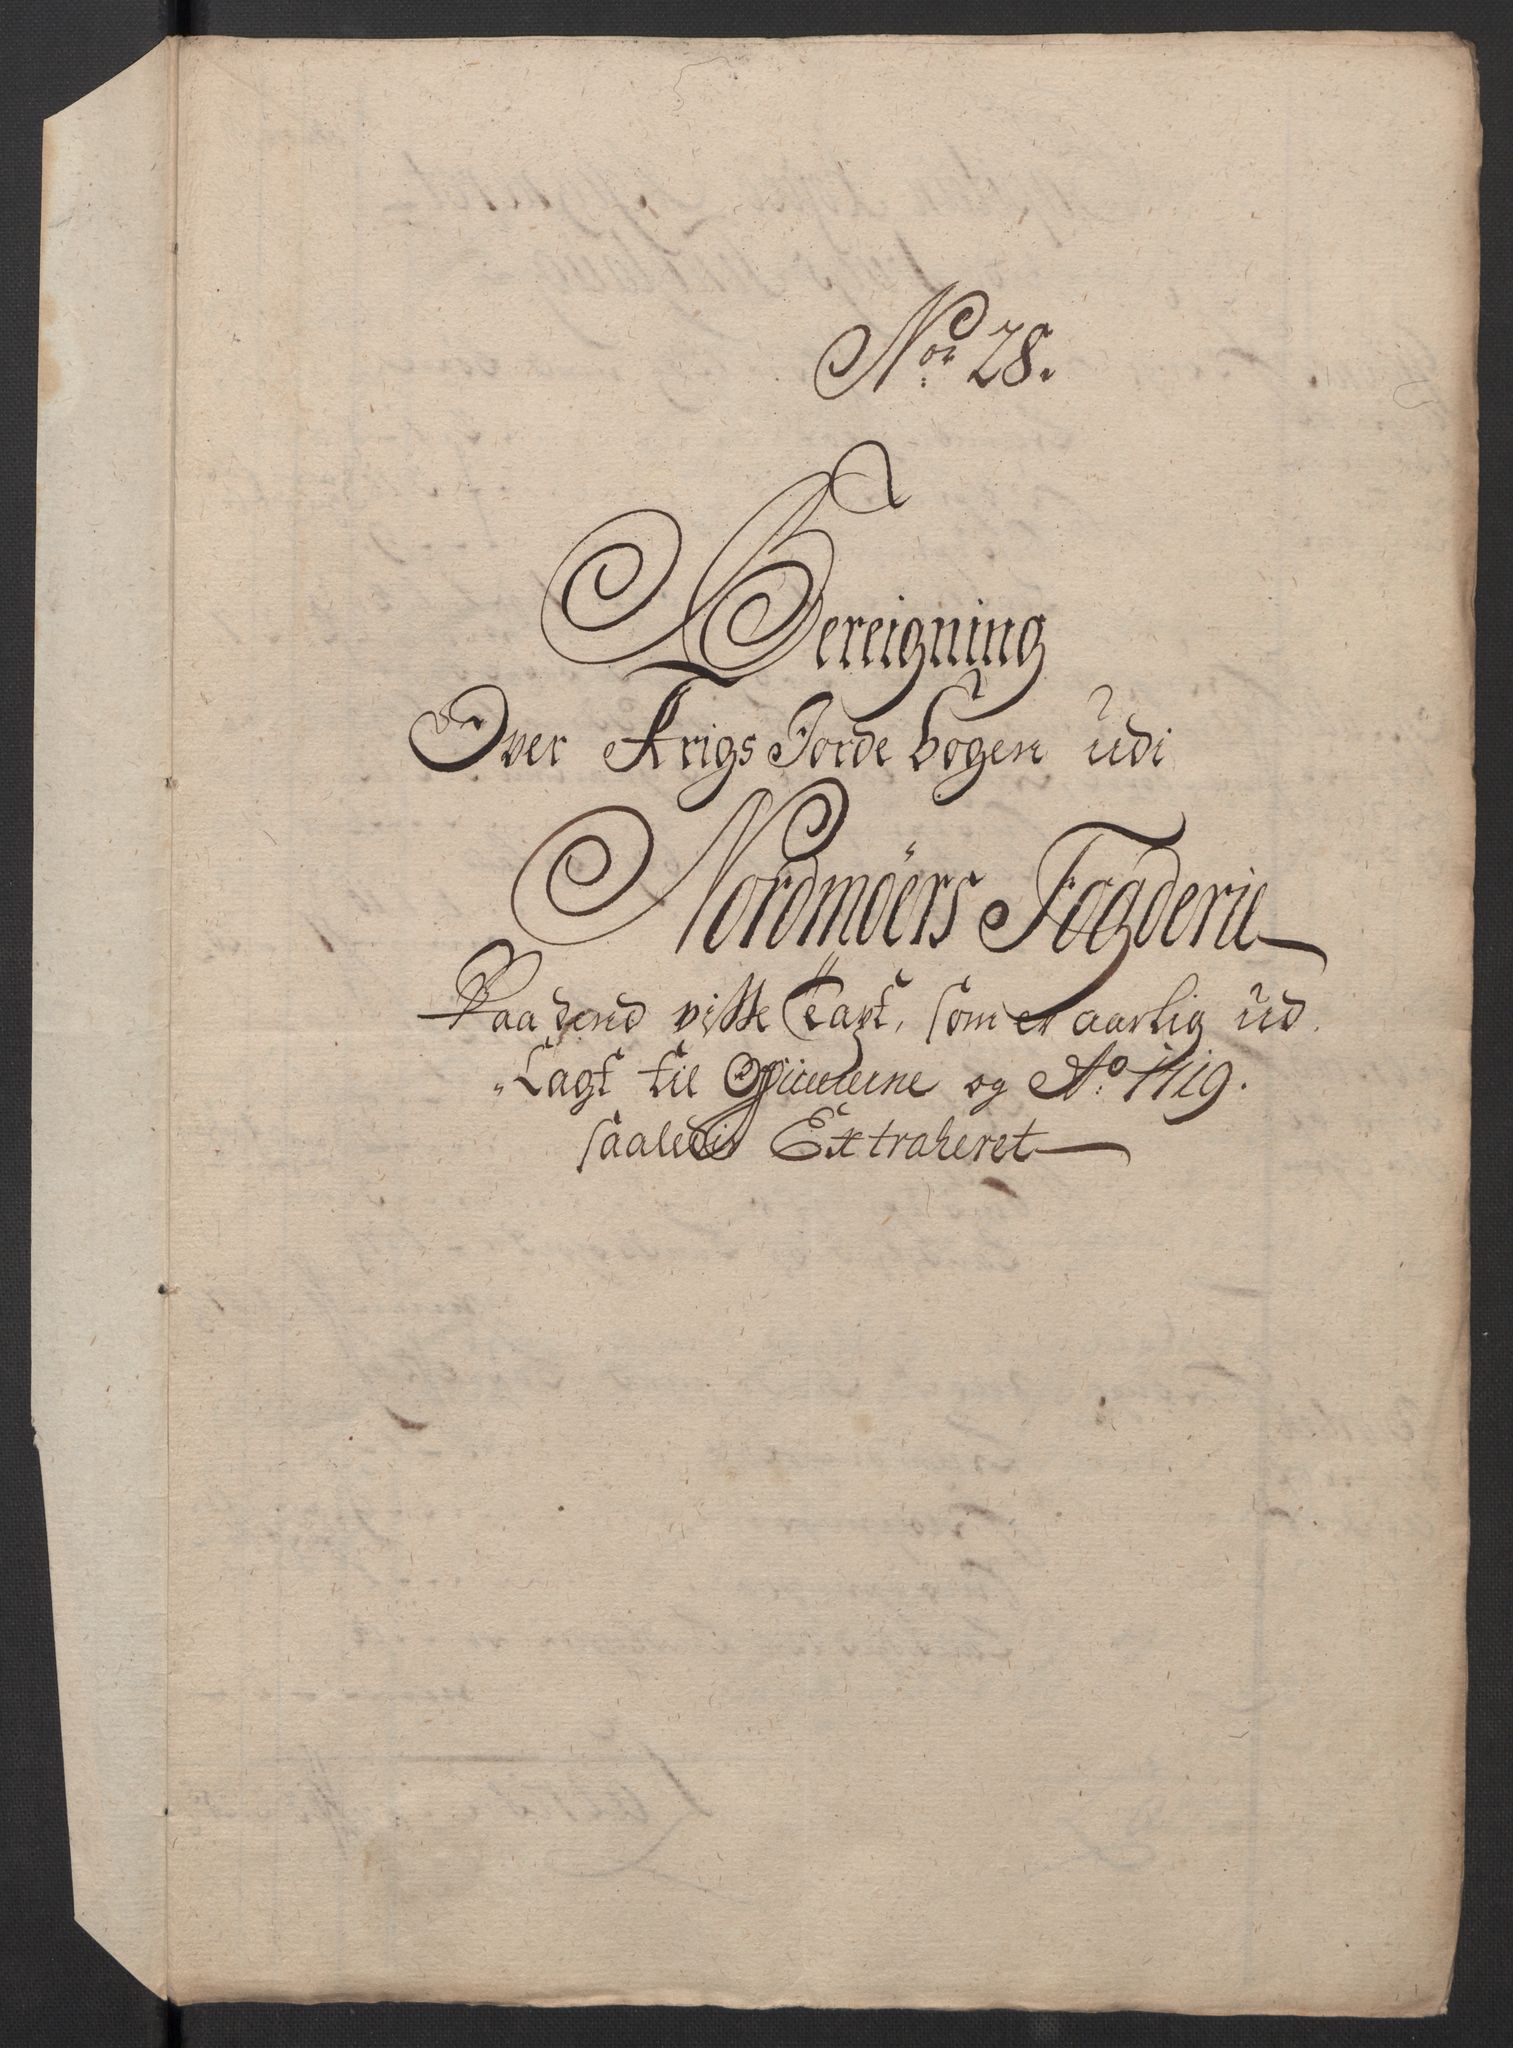 No: 28.
Bereigning
Over Krigs Jordebogen udi
Nordmöers Fogderie
Paa dend visse Taxt, som er aarlig ud
Lagt til Officicererne og Ao: 1719.
saaledis Extraheret